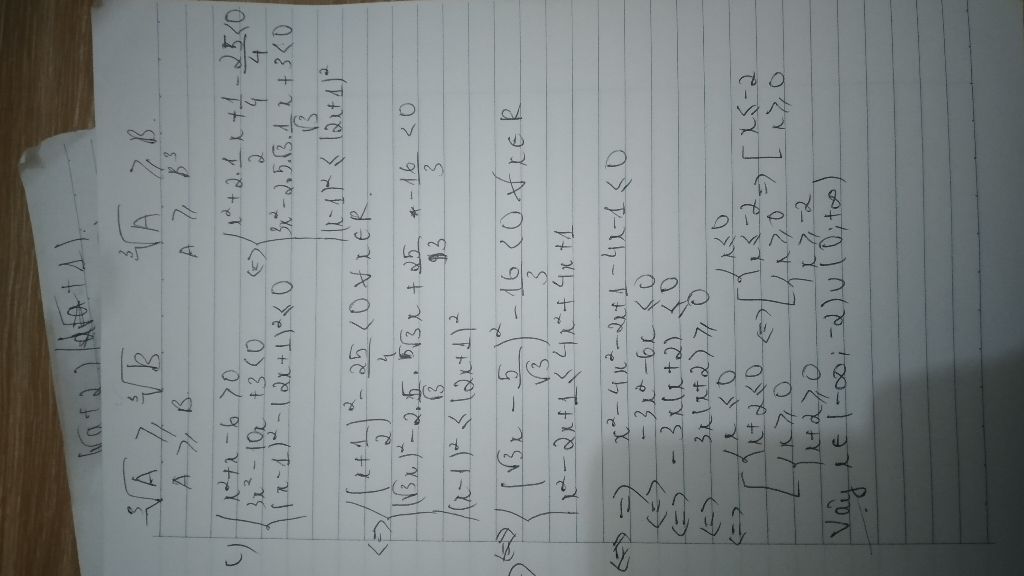 (√a+2) (√a+1).
∛A ⩾ ∛B    ∛A ⩾ B.
A ⩾ B    A ⩾ B³
c) { x²+x-6 >0
3x²-10x+3<0
(x-1)²-(2x+1)²≤0
<=> { x²+2.1/2 x+1/4-25/4<0
3x²-2.5.√3.1/√3 x+3<0
(x-1)²≤(2x+1)²
<=> { (x+1/2)²-25/4<0 ∀x∈R
(√3x)²-2.5/√3.√3x+25/3-16/3<0
(x-1)²≤(2x+1)²
<=> { (√3x-5/√3)²-16/3<0 ∀x∈R
x²-2x+1≤4x²+4x+1
<=> => x²-4x²-2x+1-4x-1≤0
<=> -3x²-6x≤0
<=> -3x(x+2)≤0
<=> 3x(x+2)⩾0
<=> [ { x≤0
x+2≤0
{ x⩾0
x+2⩾0
<=> [ { x≤0
x≤-2
{ x⩾0
x⩾-2
=> [ x≤-2
x⩾0
Vậy x∈(-∞;-2)∪(0;+∞)